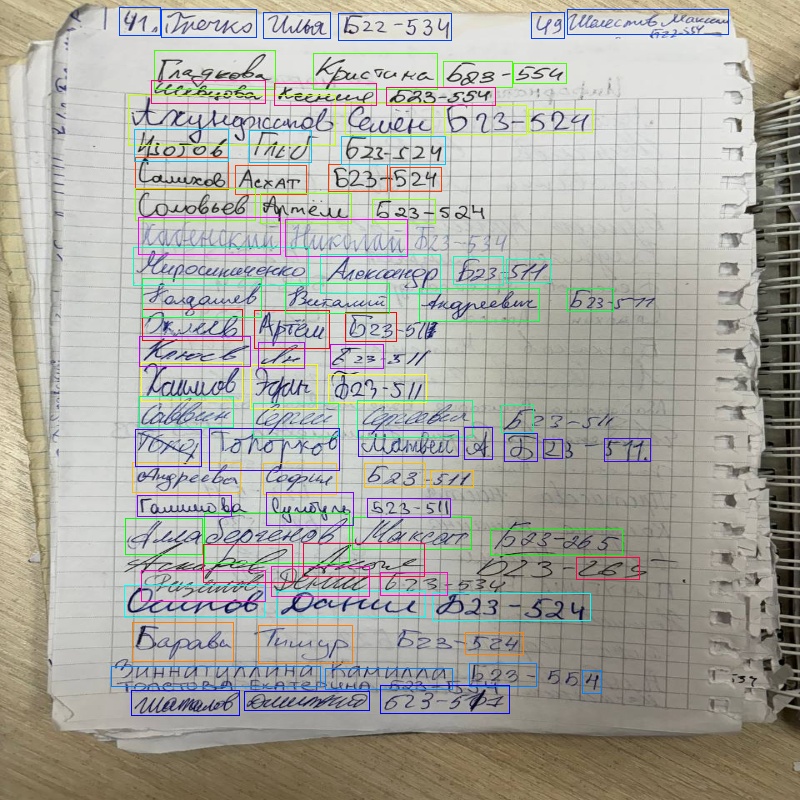 41. Гречко Илья Б22-534 49 Шелестов Максим
Б22-534
Гладкова Кристина Б23-554
Шевцова Ксения Б23-554
Ахунджанов Семён Б23-524
Изотов Глеб Б23-524
Салихов Асхат Б23-524
Соловьев Артём Б23-524
Каменский Николай Б23-534
Мирошниченко Александр Б23-511
Юлдашев Виталий Андреевич Б23-511
Артём Б23-511
Клюев Б23-511
Каимов Б23-511
Саввин Сергей Сергеевич Б23-511
Топорков Матвей А. Б23-511.
Андреева София Б23-511
Галимова Сумбуль Б23-511
Аллабергенов Максат Б23-265
Аскаров Б23-265
Данил Б23-534
Осипов Данил Б23-524
Тимур Б23-524
Зиннатуллина Камилла Б23-554
Толстова Екатерина
Шаталов Дмитрий Б23-517